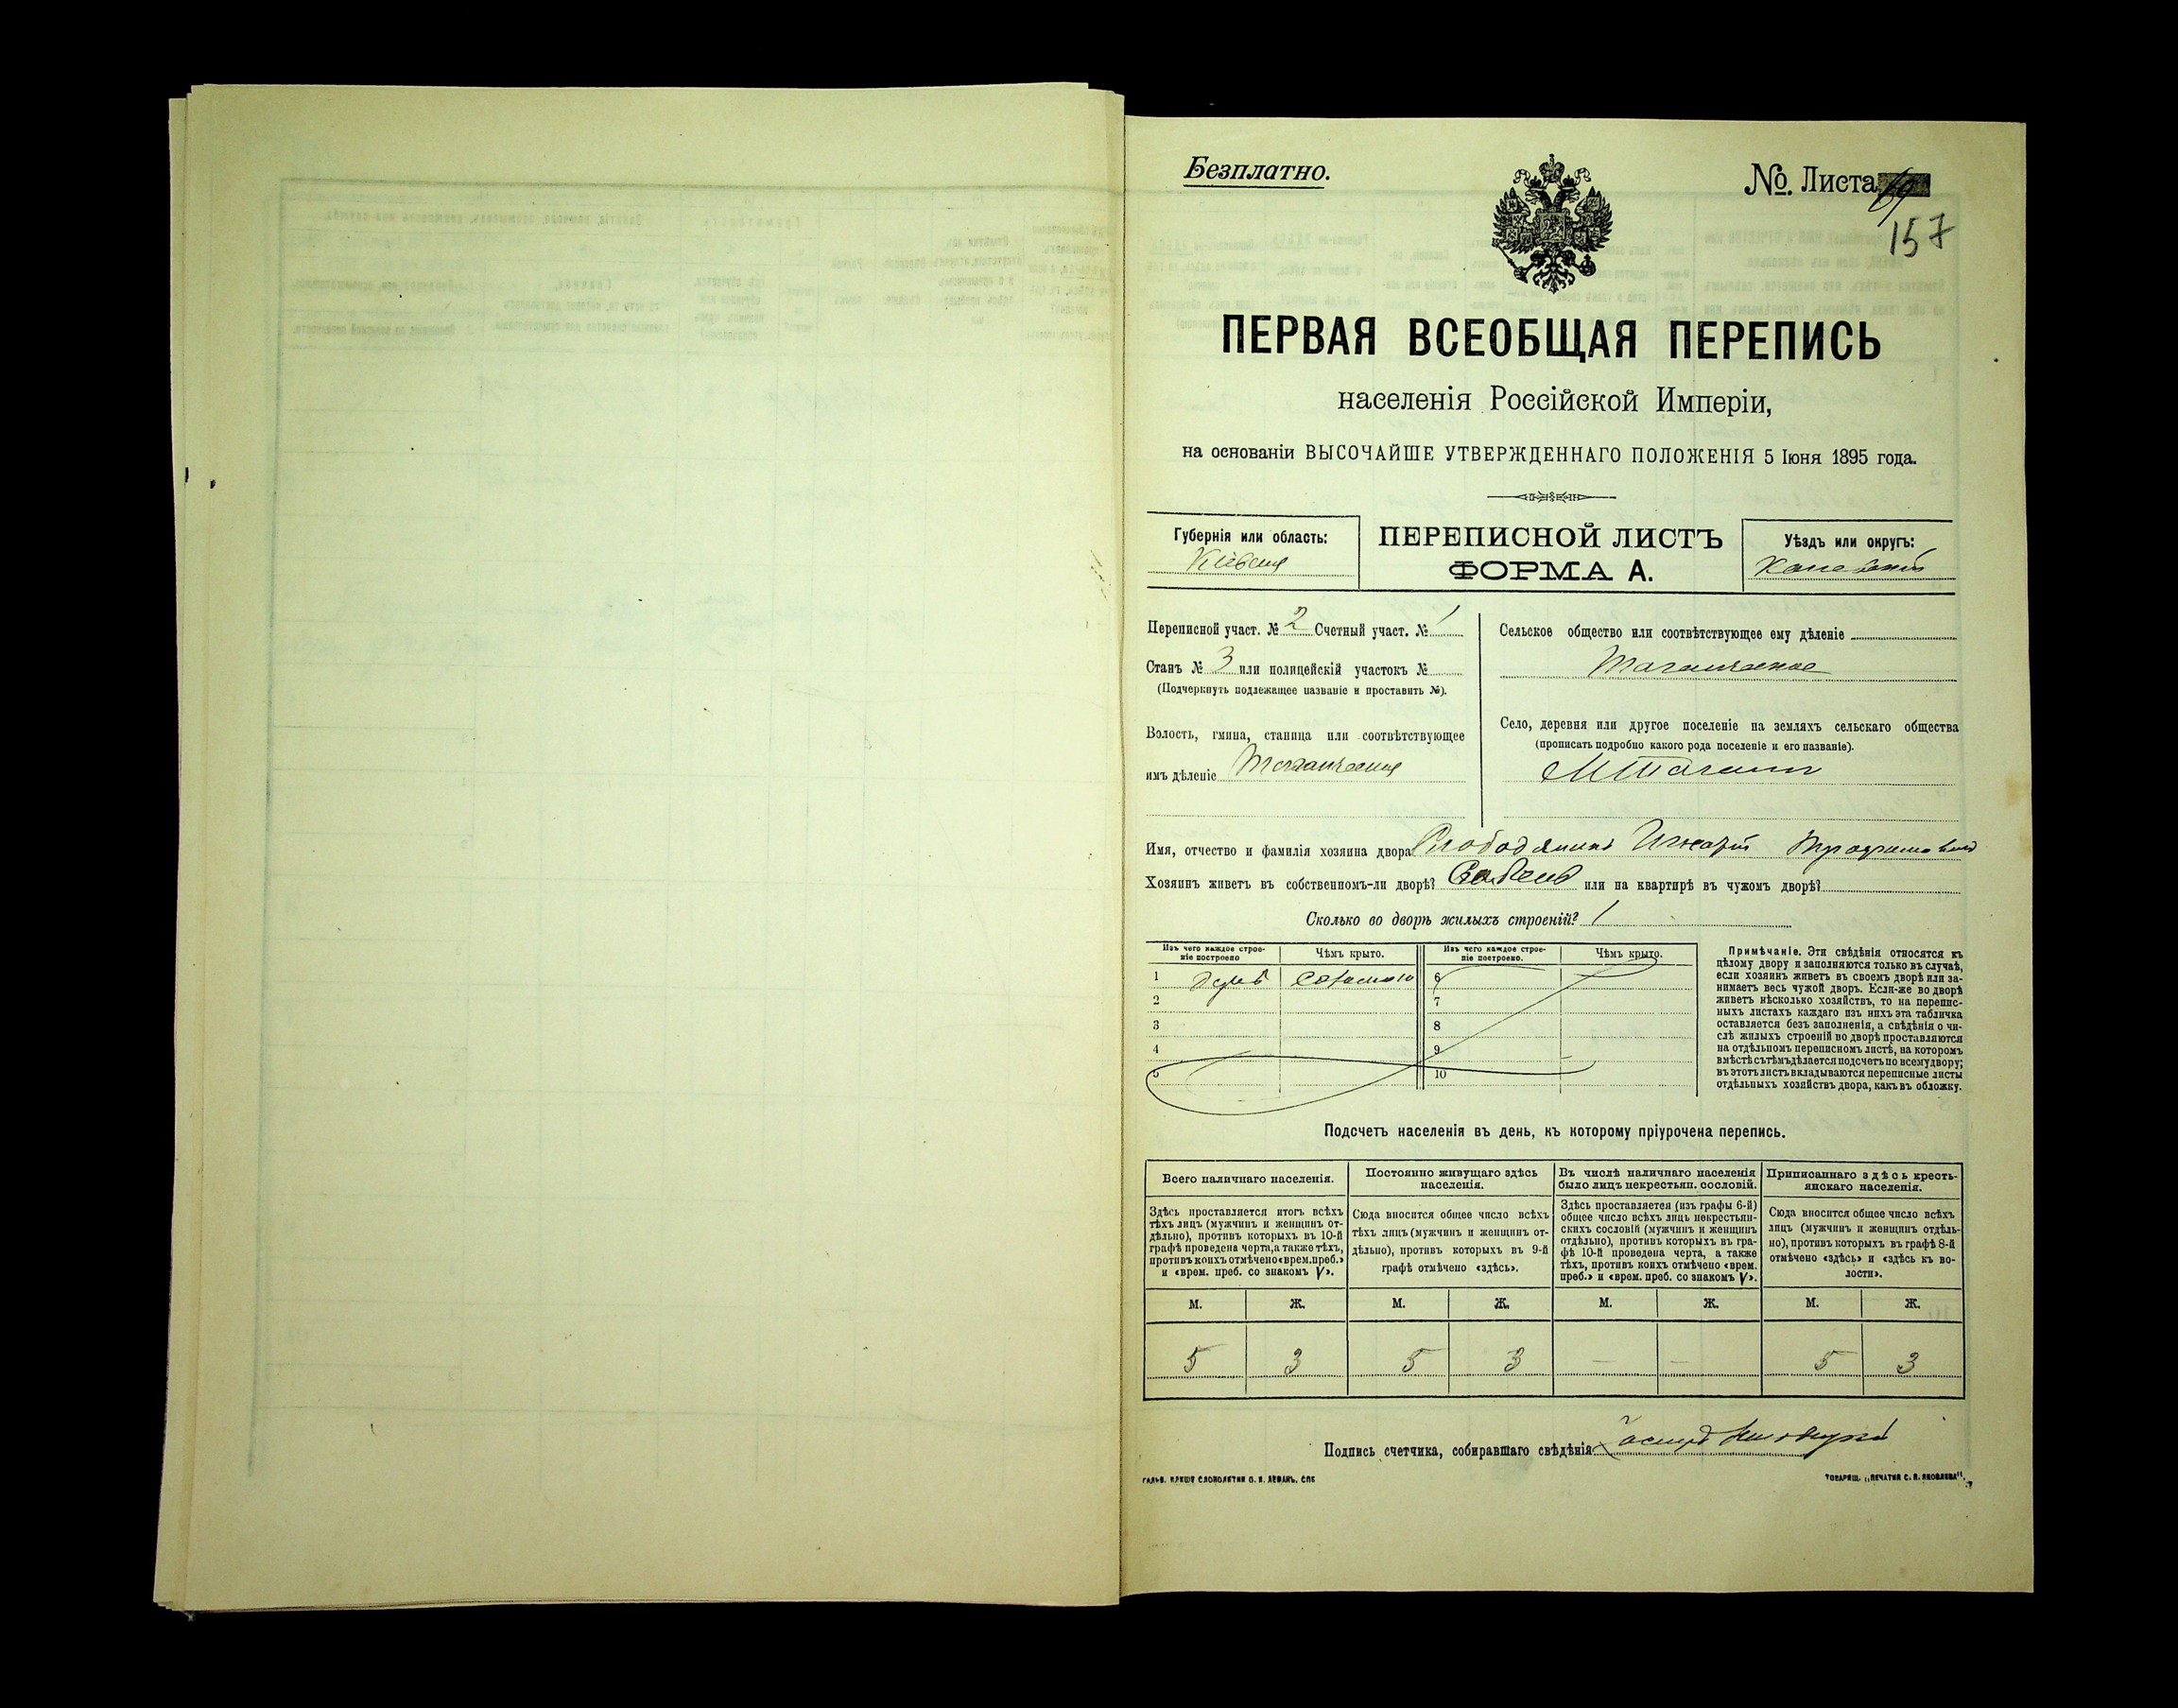 Безплатно.
№. Листа 69
157
ПЕРВАЯ ВСЕОБЩАЯ ПЕРЕПИСЬ
населенія Россійской Имперіи,
на основаніи ВЫСОЧАЙШЕ УТВЕРЖДЕННАГО ПОЛОЖЕНІЯ 5 Іюня 1895 года.
Губернія или область:
Кіевская
ПЕРЕПИСНОЙ ЛИСТЪ
ФОРМА А.
Уѣздъ или округъ:
Каневскій
Переписной участ. № 2 Счетный участ. № 1
Станъ № 3 или полицейскій участокъ №
(Подчеркнуть подлежащее названіе и проставить №).
Волость, гмина, станица или соотвѣтствующее
имъ дѣленіе Таганчская
Сельское общество или соотвѣтствующее ему дѣленіе
Таганчское
Село, деревня или другое поселеніе на земляхъ сельскаго общества
(прописать подробно какого рода поселеніе и его названіе).
Имя, отчество и фамилія хозяина двора Слободяникъ Игнатій Трофимовичъ
Хозяинъ живетъ въ собственномъ-ли дворѣ? или на квартирѣ въ чужомъ дворѣ?
Сколько во дворѣ жилыхъ строеній? 1
Изъ чего каждое строе-
ніе построено
Чѣмъ крыто.
Изъ чего каждое строе-
ніе построено.
Чѣмъ крыто.
1 дерев соломою 6
2 7
3 8
4 9
5 10
Примѣчаніе. Эти свѣдѣнія относятся къ
цѣлому двору и заполняются только въ случаѣ,
если хозяинъ живетъ въ своемъ дворѣ или за-
нимаетъ весь чужой дворъ. Если-же во дворѣ
живетъ нѣсколько хозяйствъ, то на перепис-
ныхъ листахъ каждаго изъ нихъ эта табличка
оставляется безъ заполненія, а свѣдѣнія о чи-
слѣ жилыхъ строеній во дворѣ проставляются
на отдѣльномъ переписномъ листѣ, на которомъ
вмѣстѣ съ тѣмъ дѣлается подсчетъ по всему двору;
въ этотъ листъ вкладываются переписные листы
отдѣльныхъ хозяйствъ двора, какъ въ обложку.
Подсчетъ населенія въ день, къ которому пріурочена перепись.
Всего наличнаго населенія.
Постоянно живущаго здѣсь
населенія.
Въ числѣ наличнаго населенія
было лицъ некрестьян. сословій.
Приписаннаго здѣсь кресть-
янскаго населенія.
Здѣсь проставляется итогъ всѣхъ
тѣхъ лицъ (мужчинъ и женщинъ от-
дѣльно), противъ которыхъ въ 10-й
графѣ проведена черта, а также тѣхъ,
противъ коихъ отмѣчено «врем. преб.»
и «врем. преб. со знакомъ V».
Сюда вносится общее число всѣхъ
тѣхъ лицъ (мужчинъ и женщинъ от-
дѣльно), противъ которыхъ въ 9-й
графѣ отмѣчено «здѣсь».
Здѣсь проставляется (изъ графы 6-й)
общее число всѣхъ лицъ некрестьян-
скихъ сословій (мужчинъ и женщинъ
отдѣльно), противъ которыхъ въ гра-
фѣ 10-й проведена черта, а также
тѣхъ, противъ коихъ отмѣчено «врем.
преб.» и «врем. преб. со знакомъ V».
Сюда вносится общее число всѣхъ
лицъ (мужчинъ и женщинъ отдѣль-
но), противъ которыхъ въ графѣ 8-й
отмѣчено «здѣсь» и «здѣсь къ во-
лости».
М. Ж. М. Ж. М. Ж. М. Ж.
5 3 5 3 — — 5 3
Подпись счетчика, собиравшаго свѣдѣнія
ТОВАРИЩ. „ПЕЧАТНЯ С. П. ЯКОВЛЕВА".